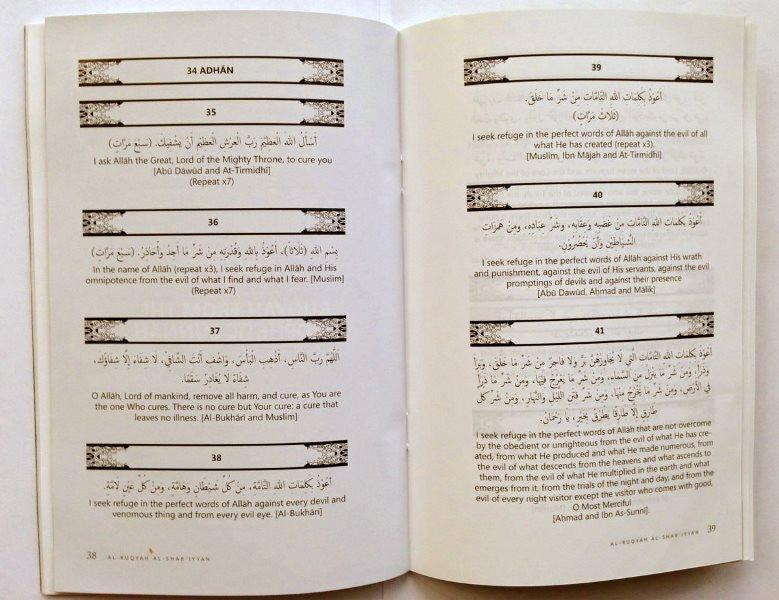 34 ADHĀN
35
أَسْأَلُ اللهَ الْعَظِيمَ رَبَّ الْعَرْشِ الْعَظِيمِ أَنْ يَشْفِيكَ. (سَبْعَ مَرَّاتٍ)
I ask Allāh the Great, Lord of the Mighty Throne, to cure you
[Abū Dāwūd and At-Tirmidhī]
(Repeat x7)
36
بِسْمِ اللهِ (ثَلَاثًا)، أَعُوذُ بِاللهِ وَقُدْرَتِهِ مِنْ شَرِّ مَا أَجِدُ وَأُحَاذِرُ. (سَبْعَ مَرَّاتٍ)
In the name of Allāh (repeat x3), I seek refuge in Allāh and His
omnipotence from the evil of what I find and what I fear. [Muslim]
(Repeat x7)
37
اَللَّهُمَّ رَبَّ النَّاسِ، أَذْهِبِ الْبَأْسَ، وَاشْفِ أَنْتَ الشَّافِي، لَا شِفَاءَ إِلَّا شِفَاؤُكَ،
شِفَاءً لَا يُغَادِرُ سَقَمًا.
O Allāh, Lord of mankind, remove all harm, and cure, as You are
the one Who cures. There is no cure but Your cure: a cure that
leaves no illness. [Al-Bukhāri and Muslim]
38
أَعُوذُ بِكَلِمَاتِ اللهِ التَّامَّةِ، مِنْ كُلِّ شَيْطَانٍ وَهَامَّةٍ، وَمِنْ كُلِّ عَيْنٍ لَامَّةٍ.
I seek refuge in the perfect words of Allāh against every devil and
venomous thing and from every evil eye. [Al-Bukhāri]
38 AL-RUQYAH AL-SHAR'IYYAH
39
أَعُوذُ بِكَلِمَاتِ اللهِ التَّامَّاتِ مِنْ شَرِّ مَا خَلَقَ.
(ثَلَاثَ مَرَّاتٍ)
I seek refuge in the perfect words of Allāh against the evil of all
what He has created (repeat x3).
[Muslim, Ibn Mājah and At-Tirmidhī]
40
أَعُوذُ بِكَلِمَاتِ اللهِ التَّامَّاتِ مِنْ غَضَبِهِ وَعِقَابِهِ، وَشَرِّ عِبَادِهِ، وَمِنْ هَمَزَاتِ
الشَّيَاطِينِ وَأَنْ يَحْضُرُونَ.
I seek refuge in the perfect words of Allāh against His wrath
and punishment, against the evil of His servants, against the evil
promptings of devils and against their presence
[Abū Dawūd, Aḥmad and Mālik]
41
أَعُوذُ بِكَلِمَاتِ اللهِ التَّامَّاتِ الَّتِي لَا يُجَاوِزُهُنَّ بَرٌّ وَلَا فَاجِرٌ مِنْ شَرِّ مَا خَلَقَ، وَبَرَأَ
وَذَرَأَ، وَمِنْ شَرِّ مَا يَنْزِلُ مِنَ السَّمَاءِ، وَمِنْ شَرِّ مَا يَعْرُجُ فِيهَا، وَمِنْ شَرِّ مَا ذَرَأَ
فِي الْأَرْضِ، وَمِنْ شَرِّ مَا يَخْرُجُ مِنْهَا، وَمِنْ شَرِّ فِتَنِ اللَّيْلِ وَالنَّهَارِ، وَمِنْ شَرِّ كُلِّ
طَارِقٍ إِلَّا طَارِقًا يَطْرُقُ بِخَيْرٍ، يَا رَحْمَانُ.
I seek refuge in the perfect words of Allāh that are not overcome
by the obedient or unrighteous from the evil of what He has cre-
ated, from what He produced and what He made numerous, from
the evil of what descends from the heavens and what ascends to
them, from the evil of what He multiplied in the earth and what
emerges from it, from the trials of the night and day, and from the
evil of every night visitor except the visitor who comes with good,
O Most Merciful
[Aḥmad and Ibn As-Sunnī].
AL-RUQYAH AL-SHAR'IYYAH 39